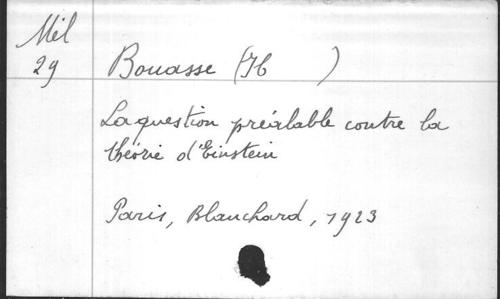 Mél
29
Bouasse (H )
La question préalable contre la
théorie d'Einstein
Paris, Blanchard, 1923